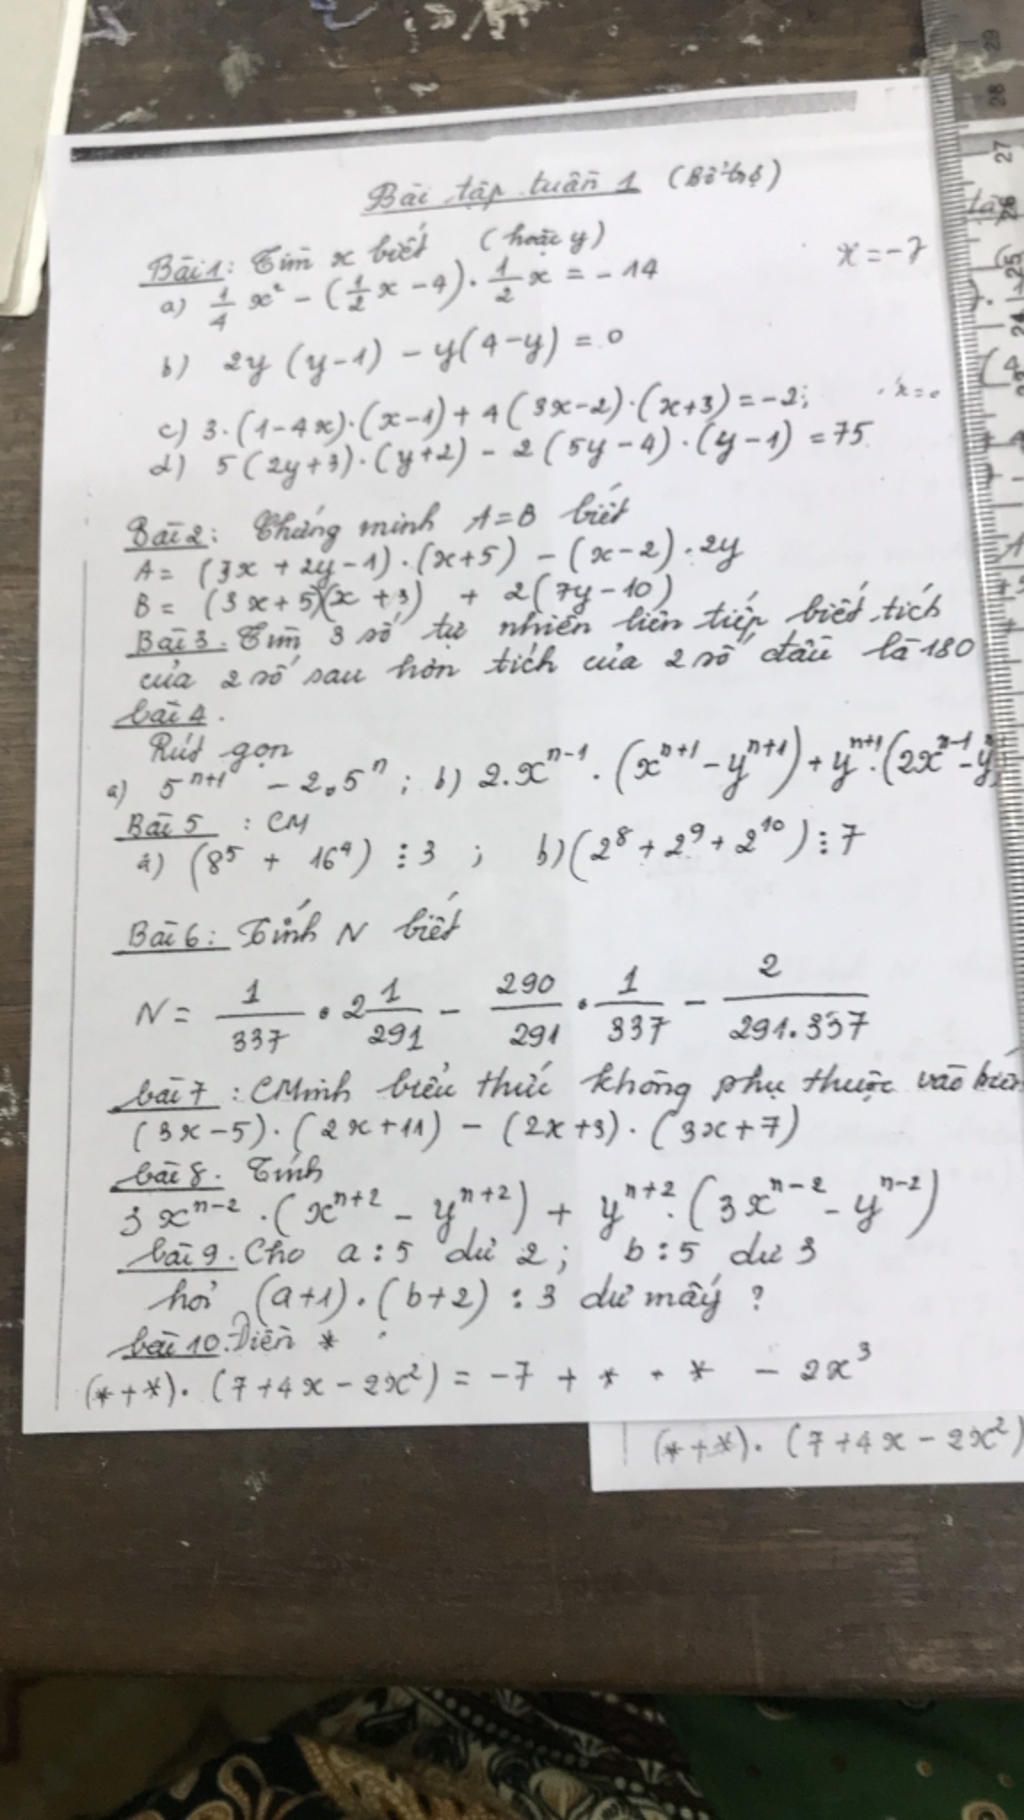 Bài tập tuần 1 (Bổ trợ)
Bài 1: Tìm x biết (hoặc y)
a) 1/4 x² - (1/2 x - 4) . 1/2 x = -14 x = -7
b) 2y (y-1) - y(4-y) = 0
c) 3.(1-4x).(x-1) + 4(3x-2).(x+3) = -2;
d) 5(2y+3).(y+2) - 2(5y-4).(y-1) = 75
Bài 2: Chứng minh A=B biết
A = (3x + 2y - 1).(x+5) - (x-2).2y
B = (3x+5)(x+3) + 2(7y-10)
Bài 3. Tìm 3 số tự nhiên liên tiếp biết tích
của 2 số sau hơn tích của 2 số đầu là 180
bài 4.
Rút gọn
a) 5ⁿ⁺¹ - 2.5ⁿ ; b) 2.xⁿ⁻¹.(xⁿ⁺¹ - yⁿ⁺¹) + yⁿ⁺¹.(2xⁿ⁻¹ - y
Bài 5 : CM
a) (8⁵ + 16⁴) ⋮ 3 ; b) (2⁸ + 2⁹ + 2¹⁰) ⋮ 7
Bài 6: Tính N biết
N = 1/337 . 2 1/291 - 290/291 . 1/337 - 2/291.337
bài 7 : CMinh biểu thức không phụ thuộc vào biến
(3x-5).(2x+11) - (2x+3).(3x+7)
bài 8. Tính
3xⁿ⁻².(xⁿ⁺² - yⁿ⁺²) + yⁿ⁺².(3xⁿ⁻² - yⁿ⁻²)
bài 9. Cho a : 5 dư 2; b : 5 dư 3
hỏi (a+1).(b+2) : 3 dư mấy ?
bài 10. Điền *
(*+*).(7+4x-2x²) = -7 + * + * - 2x³
(*+*).(7+4x-2x²)